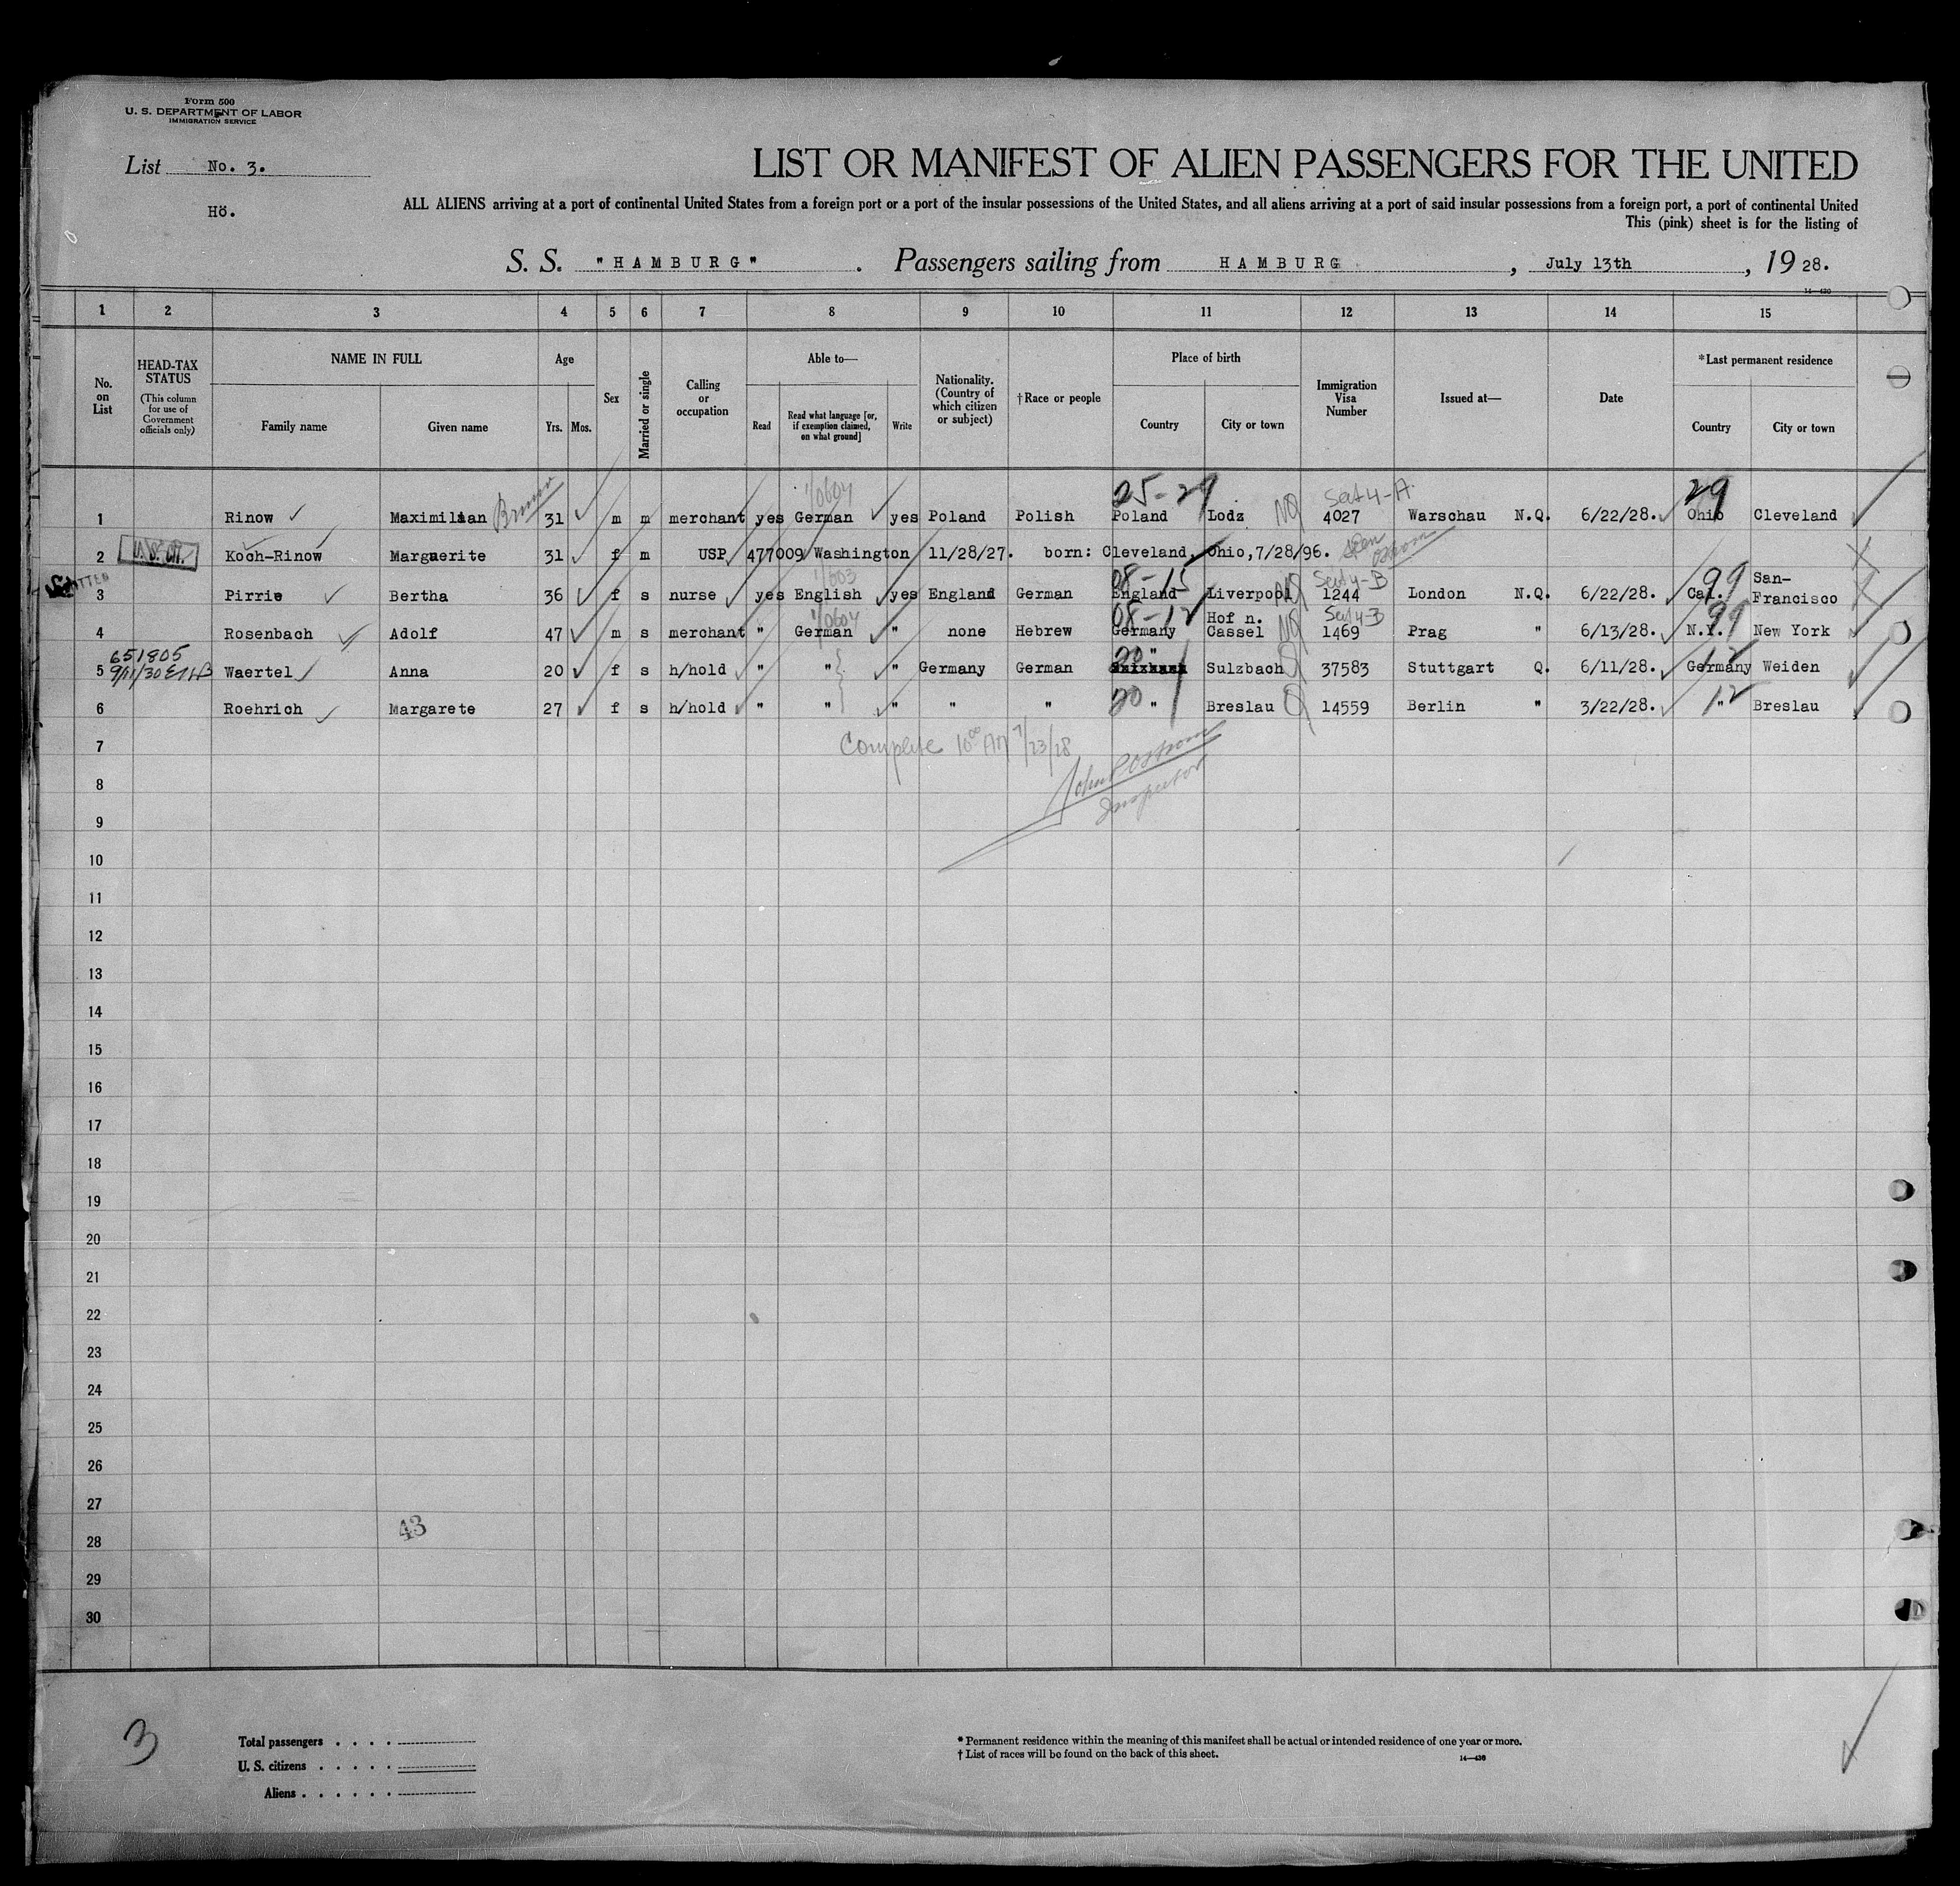 Form 500
U. S. DEPARTMENT OF LABOR
IMMIGRATION SERVICE
List No. 3.
LIST OR MANIFEST OF ALIEN PASSENGERS FOR THE UNITED
Hö.
ALL ALIENS arriving at a port of continental United States from a foreign port or a port of the insular possessions of the United States, and all aliens arriving at a port of said insular possessions from a foreign port, a port of continental United
This (pink) sheet is for the listing of
S. S. "HAMBURG" . Passengers sailing from HAMBURG , July 13th , 1928.
14—430
1 2 3 4 5 6 7 8 9 10 11 12 13 14 15
No. on List
HEAD-TAX STATUS
(This column for use of Government officials only)
NAME IN FULL
Family name Given name
Age
Yrs. Mos.
Sex
Married or single
Calling or occupation
Able to—
Read
Read what language [or, if exemption claimed, on what ground]
Write
Nationality. (Country of which citizen or subject)
†Race or people
Place of birth
Country City or town
Immigration Visa Number
Issued at—
Date
*Last permanent residence
Country City or town
25-29 Sect 4-A 29
1 Rinow Maximilian Bruno 31 m m merchant yes German yes Poland Polish Poland Lodz NQ 4027 Warschau N.Q. 6/22/28. Ohio Cleveland
2 U.S. CIT. Koch-Rinow Marguerite 31 f m USP 477009 Washington 11/28/27. born: Cleveland, Ohio, 7/28/96.
08-15 Sect 4-B 99
3 Pirrie Bertha 36 f s nurse yes English yes England German England Liverpool NQ 1244 London N.Q. 6/22/28. Cal. San-Francisco
08-12 Sect 4-B 99
4 Rosenbach Adolf 47 m s merchant " German " none Hebrew Germany Hof n. Cassel NQ 1469 Prag " 6/13/28. N.Y. New York
651805
9/11/30
5 Waertel Anna 20 f s h/hold " " " Germany German " Sulzbach Q 37583 Stuttgart Q. 6/11/28. Germany Weiden
20 12
6 Roehrich Margarete 27 f s h/hold " " " " " " Breslau Q 14559 Berlin " 3/22/28. " Breslau
7
Complete 10⁰⁰ AM 7/23/28
8
Inspector
9
10
11
12
13
14
15
16
17
18
19
20
21
22
23
24
25
26
27
43
28
29
30
3
Total passengers
U. S. citizens
Aliens
* Permanent residence within the meaning of this manifest shall be actual or intended residence of one year or more.
† List of races will be found on the back of this sheet.
14—430